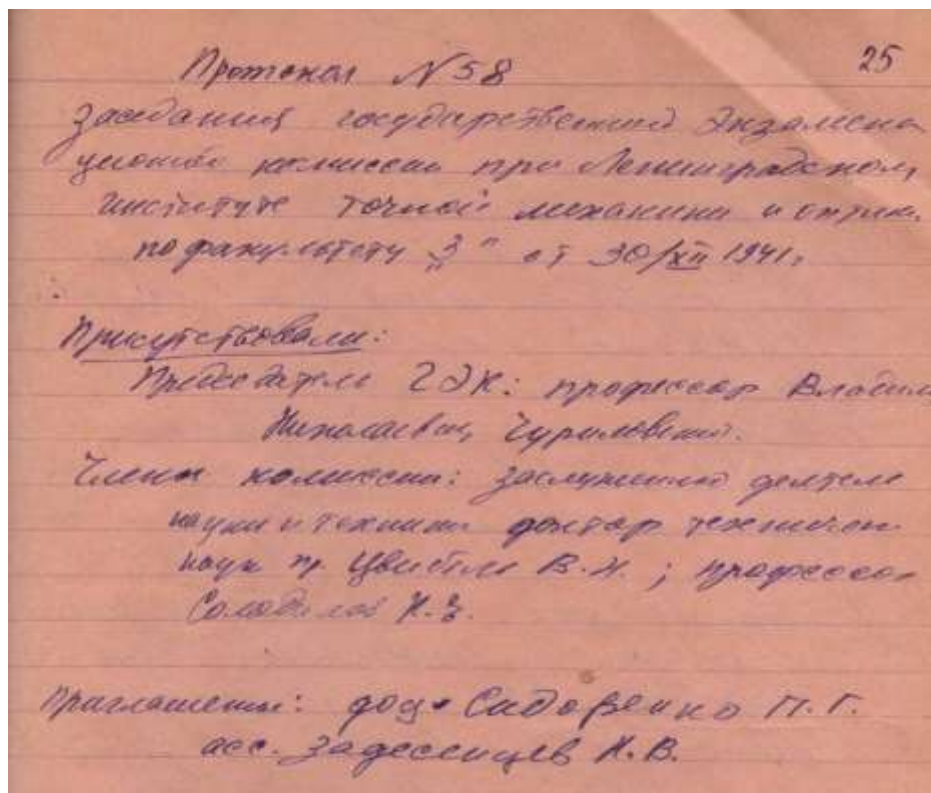 25
Протокол N58
заседания государственной Экзамена
ционной комиссии при Ленинградском
институте точной механики и оптики
по факультету "З" от 30/XII 1941г.
Присутствовали:
Председатель ГЭК: профессор Владим
Николаевич Чуриловский.
Члены комиссии: заслуженный деятель
науки и техники доктор техничес
наук пр. Цвибель В.Н.; профессор
Солодилов К.Е.
Приглашены: доц. Сидоренко П.Г.
асс. Задесенцев К.В.